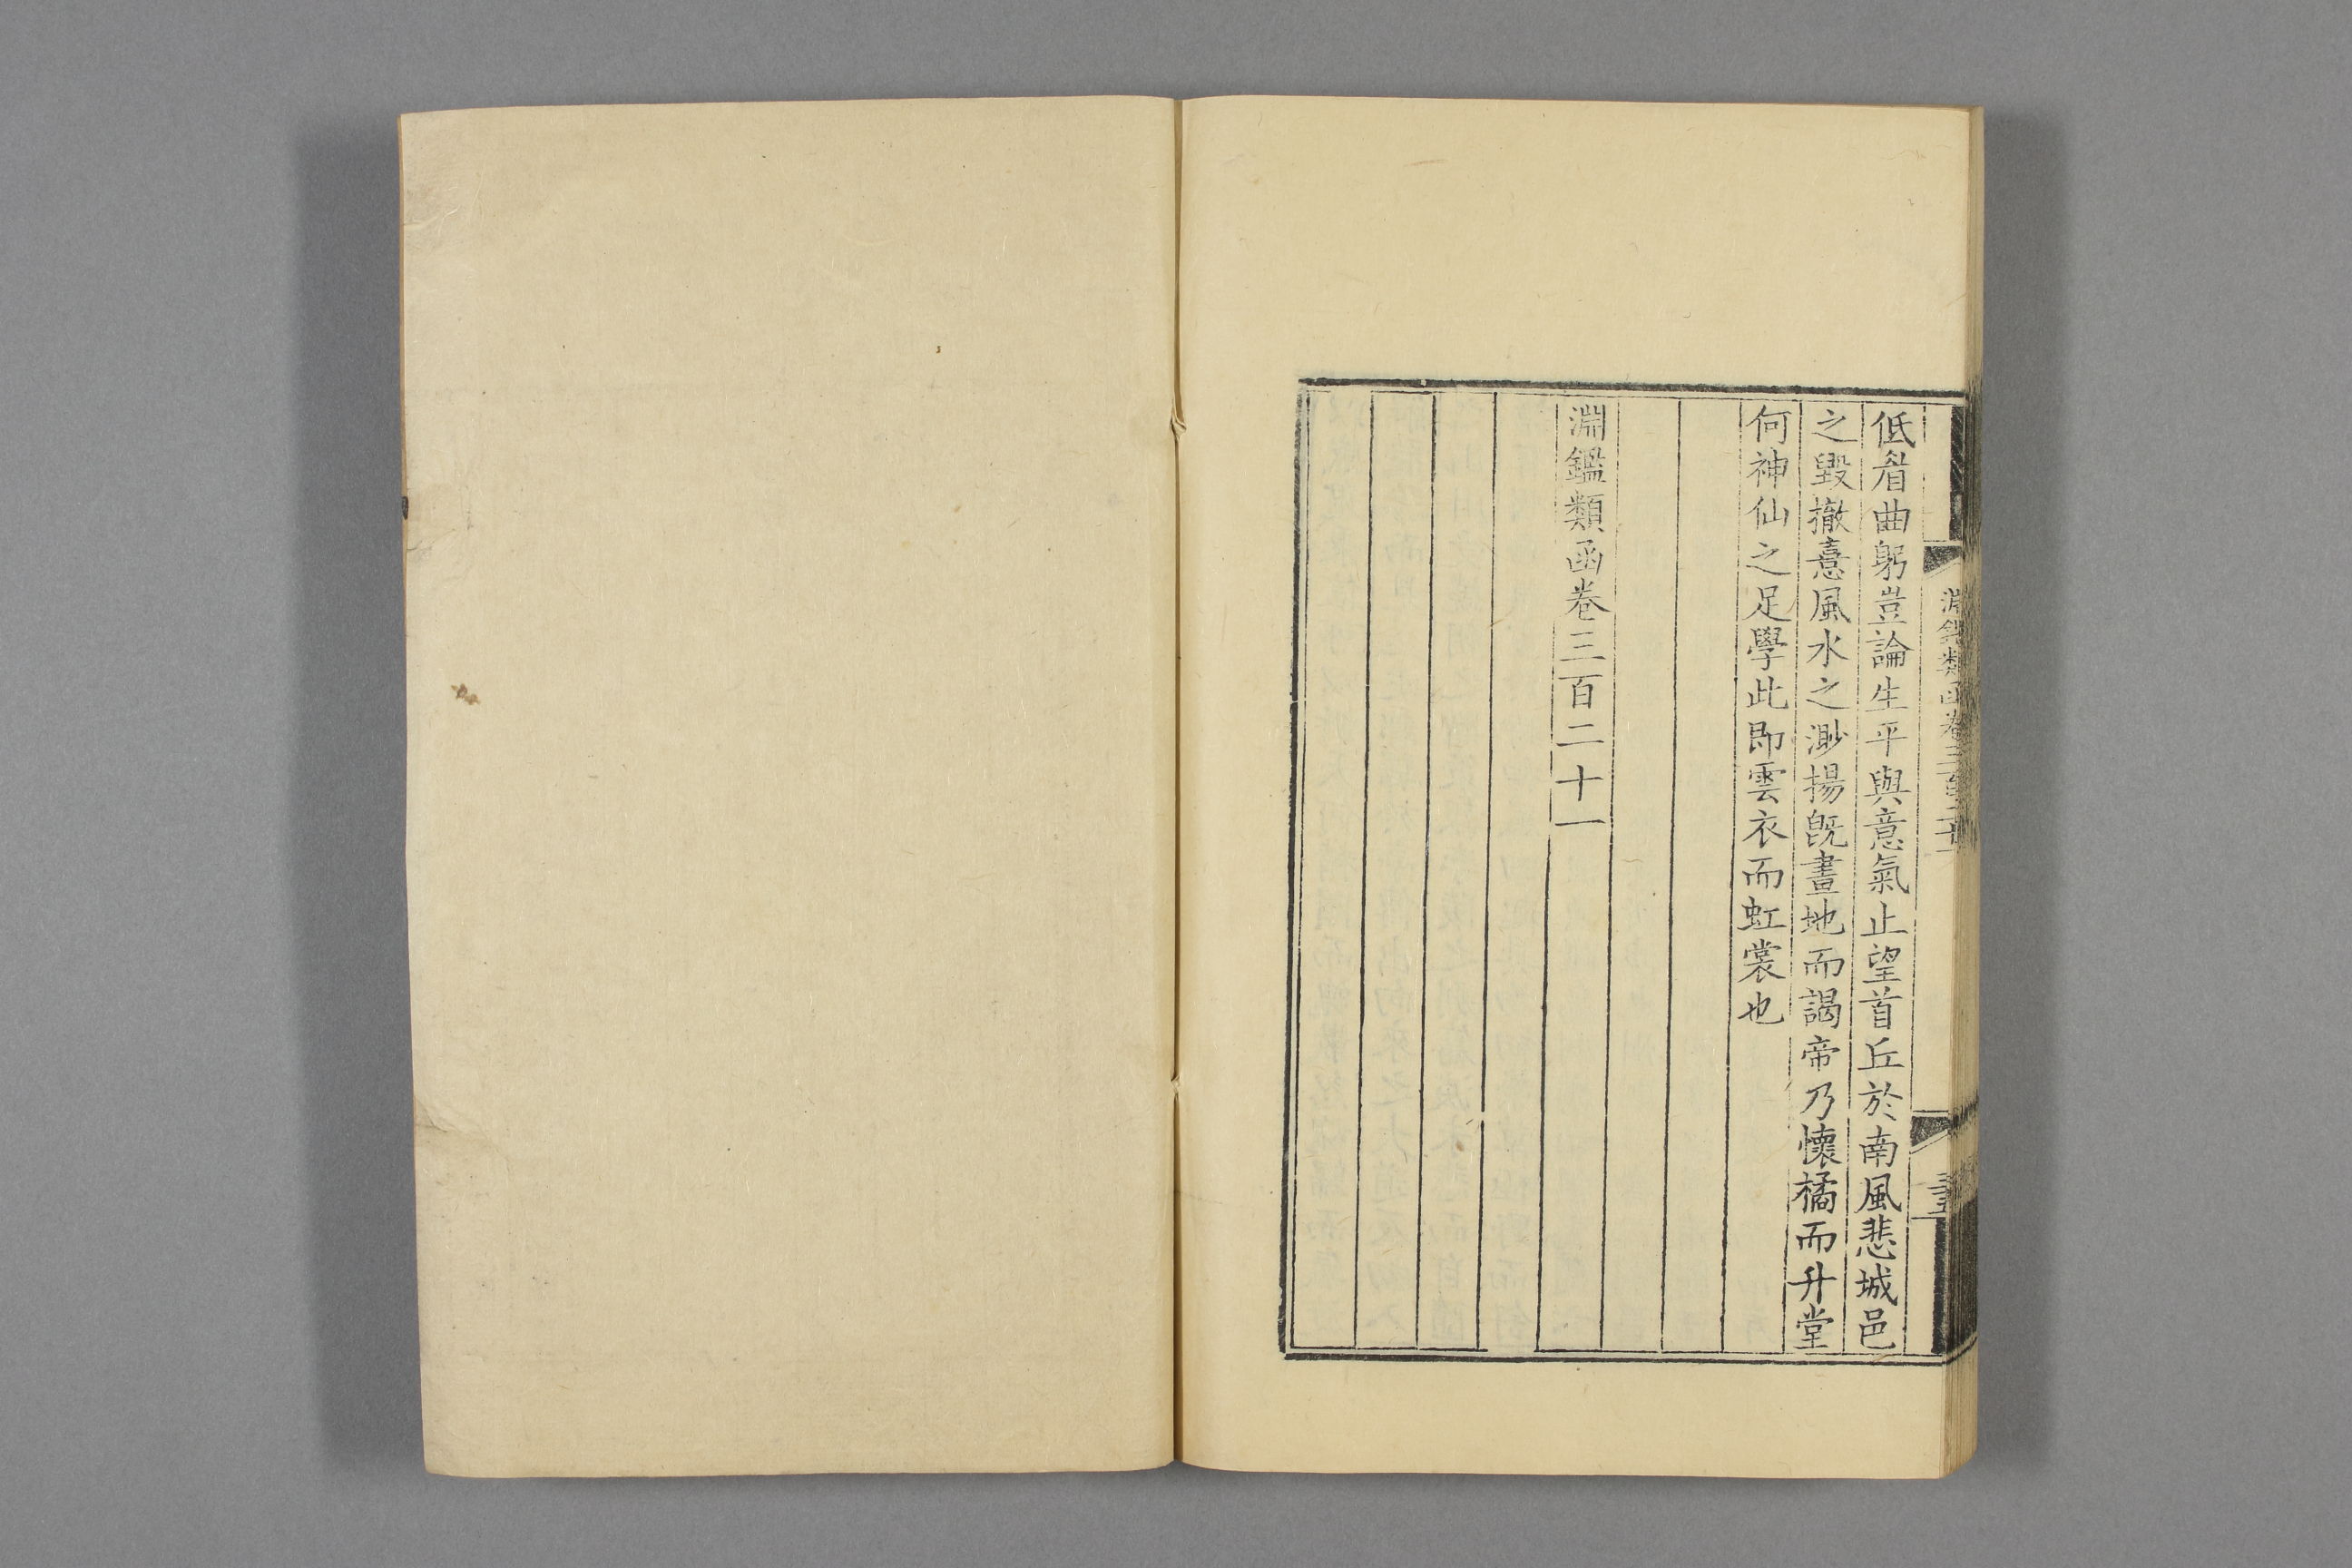 淵鑑類函卷三百二十一
三五
低眉曲躬豈論生平與意氣止望首丘於南風悲城邑
之毀撤憙風水之渺揚旣晝地而謁帝乃懷橘而升堂
何神仙之足學此即雲衣而虹裳也
淵鑑類函卷三百二十一